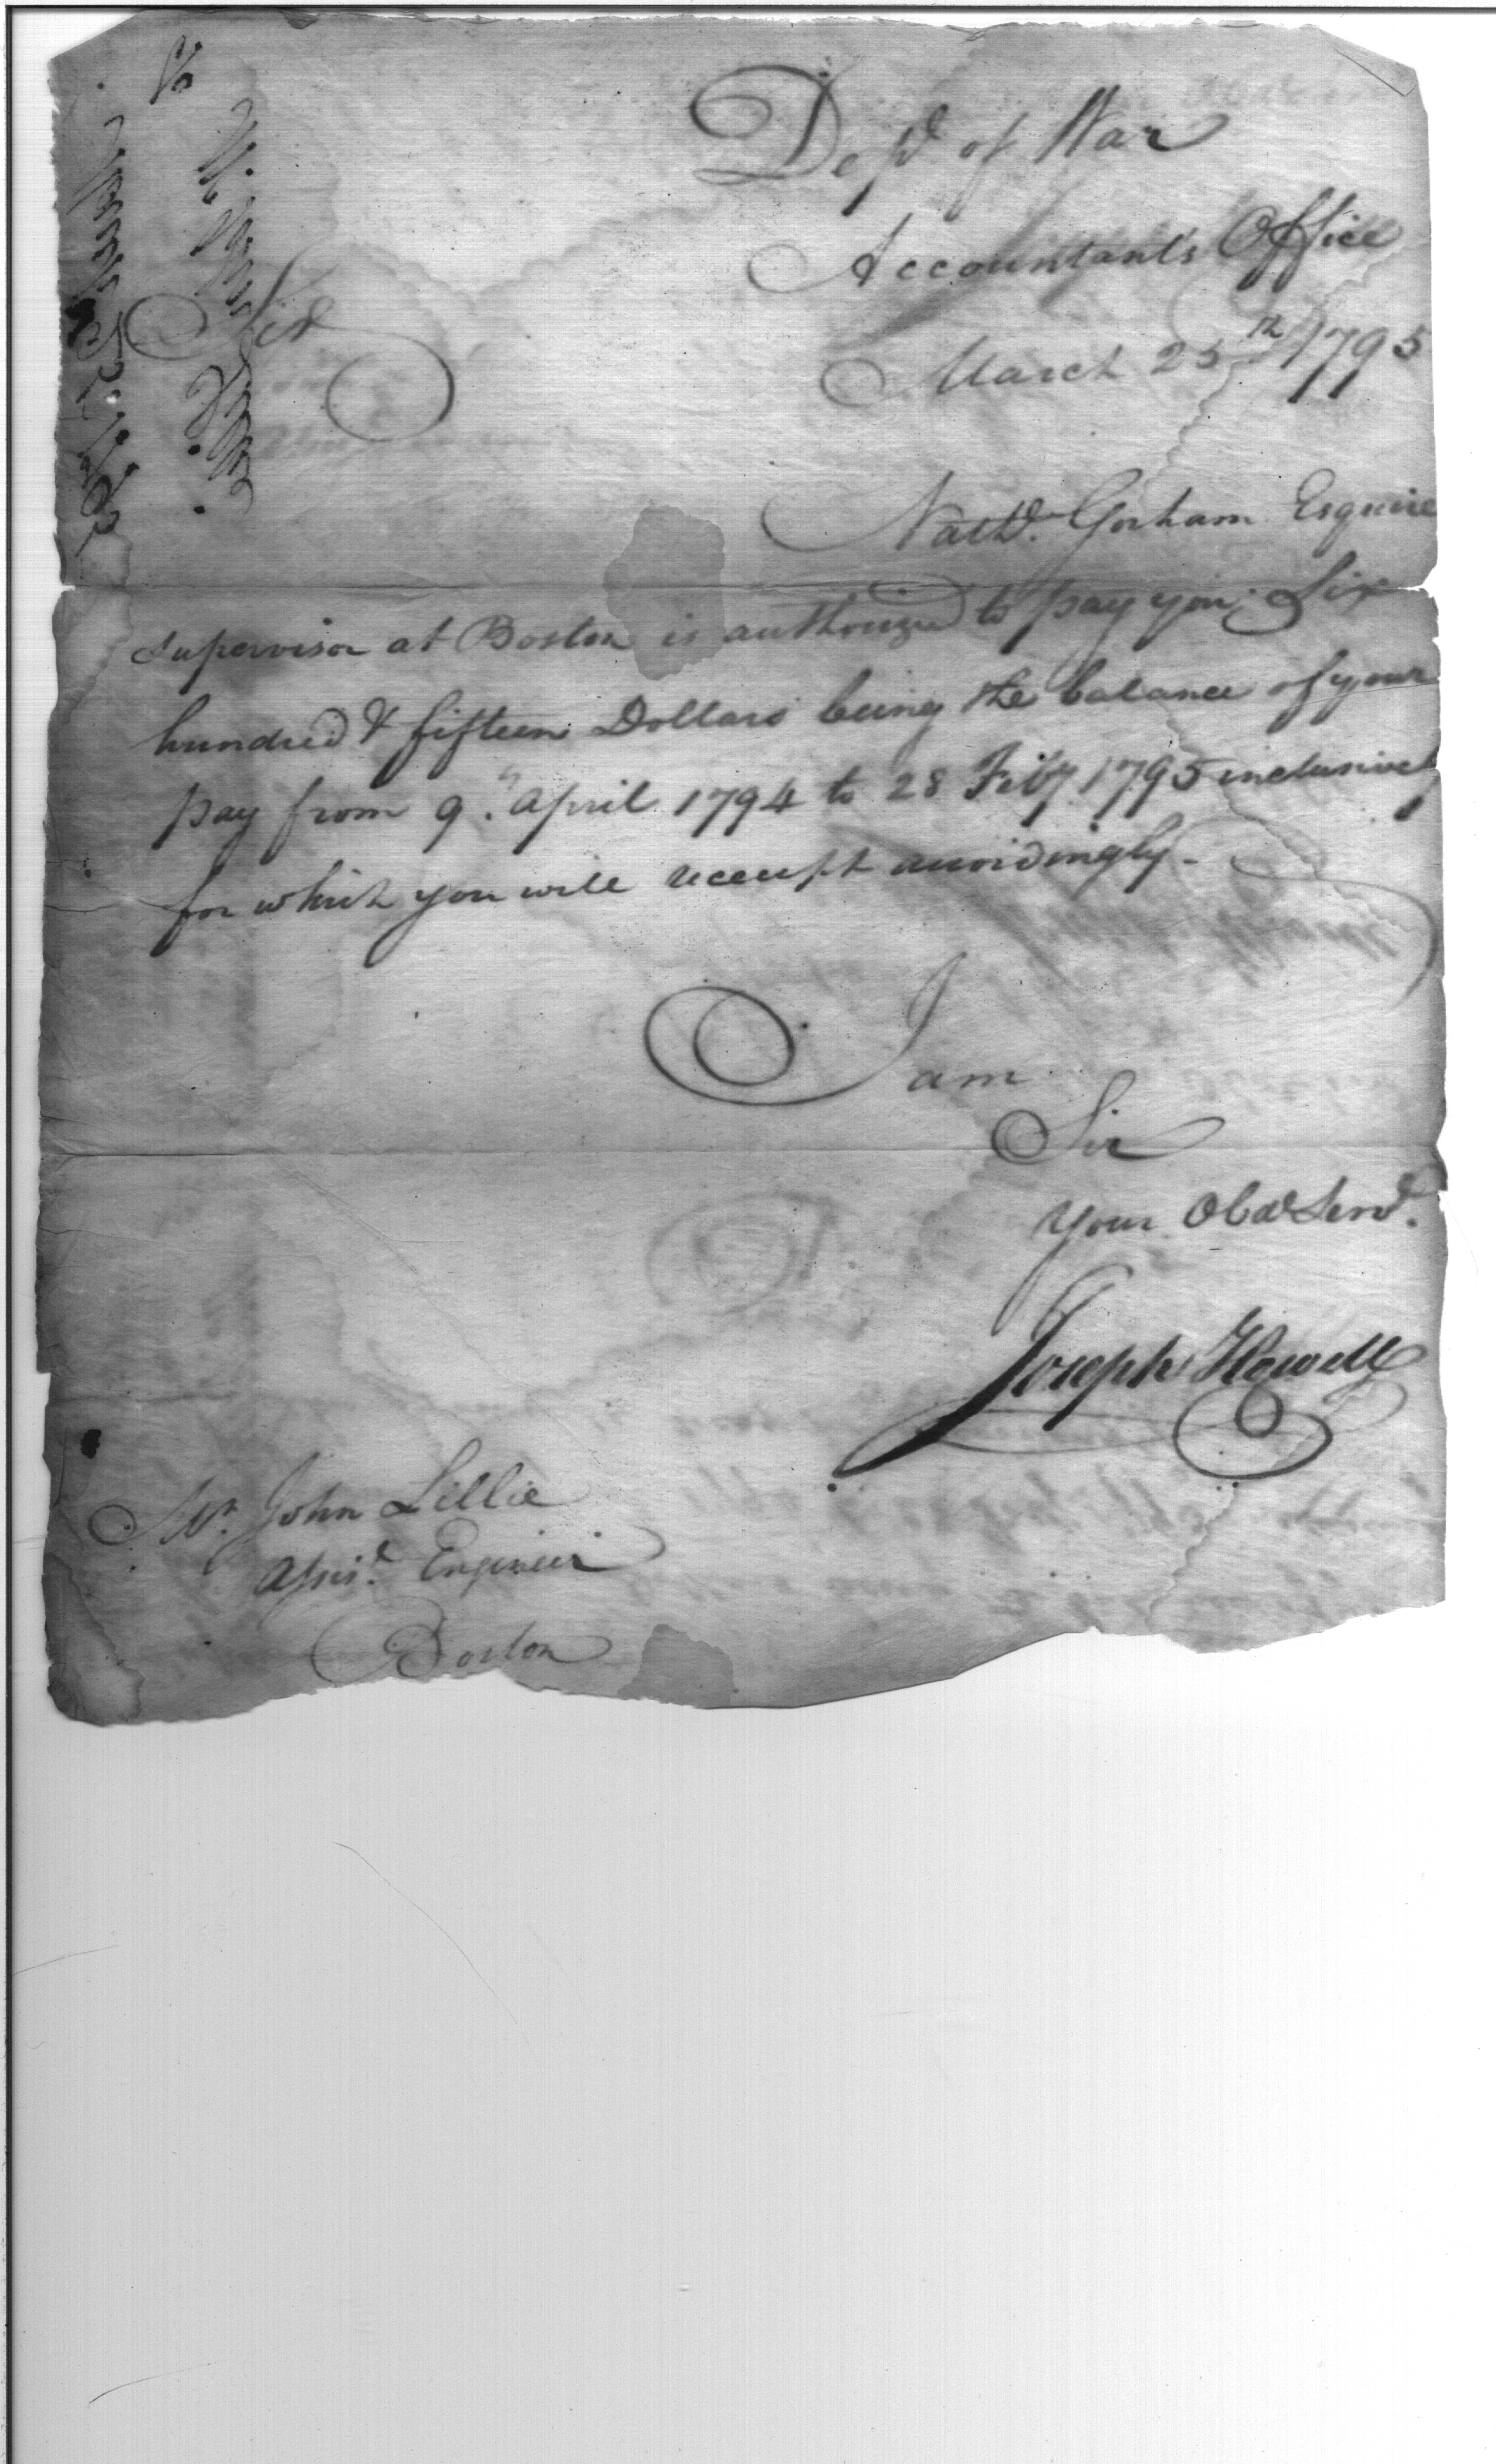 Dept of War
Accountants Office
March 25th 1795
Sir
Nathl. Gorham Esquire
supervisor at Boston is authorized to pay you Six
hundred & fifteen Dollars being the balance of your
pay from 9th April 1794 to 28 Feby 1795 inclusively
for which you will receipt accordingly -
I am
Sir
Your Obdt Servt.
Joseph Howell
Mr. John Lillie
Assist. Engineer
Boston